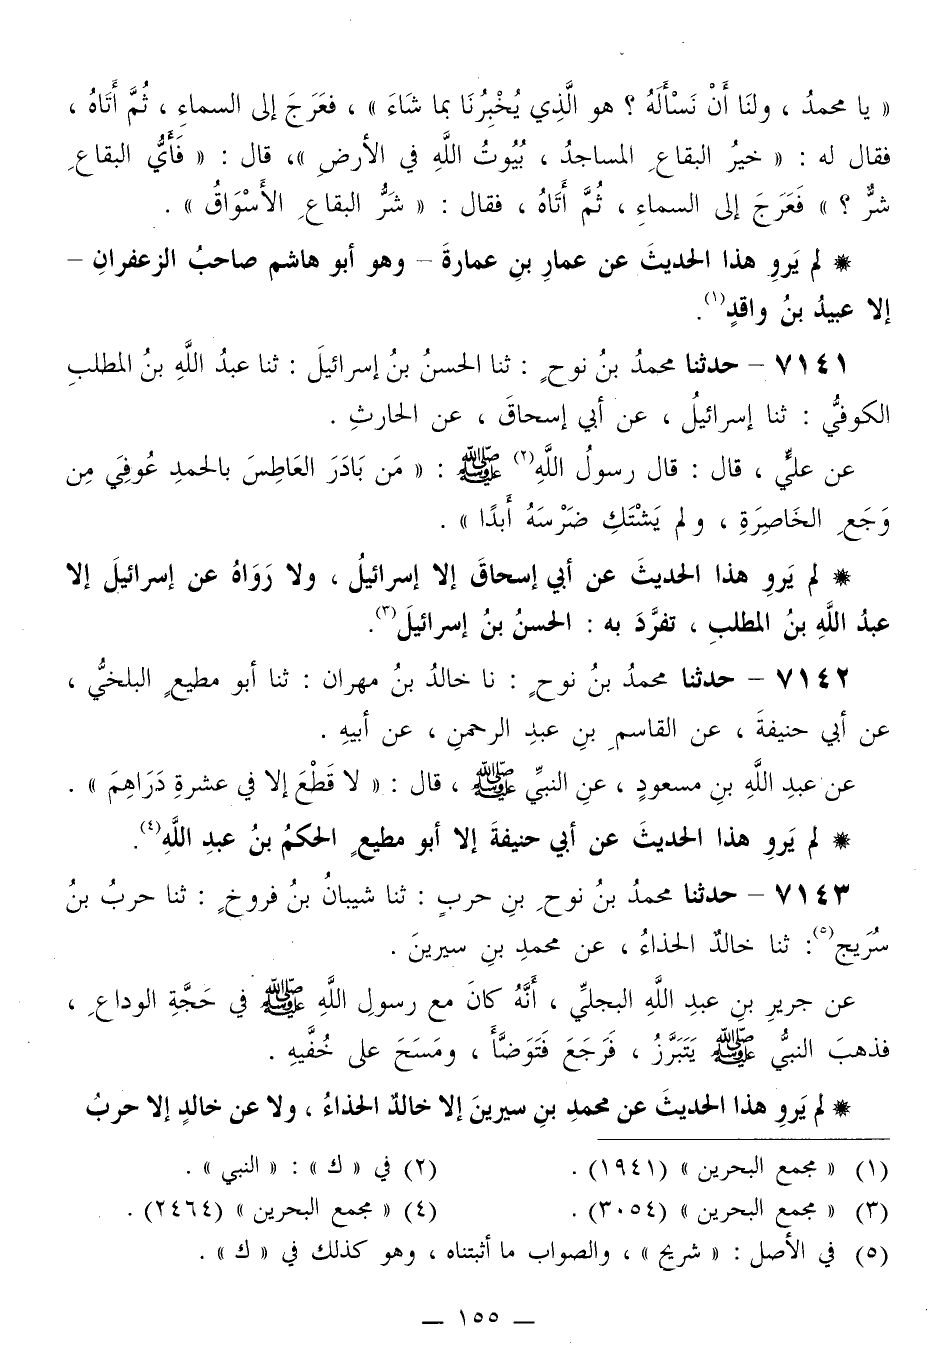 « يا محمدُ ، ولنَا أَنْ نَسْأَلَهُ ؟ هو الَّذِي يُخْبِرُنَا بما شَاءَ » ، فعَرَجَ إلى السماءِ ، ثُمَّ أَتَاهُ ،
فقال له : « خيرُ البقاعِ المساجدُ ، بُيُوتُ اللَّهِ في الأرضِ »، قال : « فَأَيُّ البقاعِ
شرٌّ ؟ » فَعَرَجَ إلى السماءِ ، ثُمَّ أَتَاهُ ، فقال : « شَرُّ البقاعِ الأَسْوَاقُ » .
✷ لم يَروِ هذا الحديثَ عن عمارِ بنِ عمارةَ – وهو أبو هاشم صاحبُ الزعفرانِ –
إلا عبيدُ بنُ واقدٍ(١).
٧١٤١ – حدثنا محمدُ بنُ نوحٍ : ثنا الحسنُ بنُ إسرائيلَ : ثنا عبدُ اللَّهِ بنُ المطلبِ
الكوفيُّ : ثنا إسرائيلُ ، عن أبي إسحاقَ ، عن الحارثِ .
عن عليٍّ ، قال : قال رسولُ اللَّهِ(٢) ﷺ : « مَن بَادَرَ العَاطِسَ بالحمدِ عُوفِيَ مِن
وَجَعِ الخَاصِرَةِ ، ولم يَشْتَكِ ضَرْسَهُ أَبدًا » .
✷ لم يَروِ هذا الحديثَ عن أبي إسحاقَ إلا إسرائيلُ ، ولا رَوَاهُ عن إسرائيلَ إلا
عبدُ اللَّهِ بنُ المطلبِ ، تفرَّدَ به : الحسنُ بنُ إسرائيلَ(٣).
٧١٤٢ – حدثنا محمدُ بنُ نوحٍ : نا خالدُ بنُ مهران : ثنا أبو مطيعٍ البلخيُّ ،
عن أبي حنيفةَ ، عن القاسمِ بنِ عبدِ الرحمنِ ، عن أبيهِ .
عن عبدِ اللَّهِ بنِ مسعودٍ ، عنِ النبيِّ ﷺ ، قال : « لا قَطْعَ إلا في عشرةِ دَرَاهِمَ » .
✷ لم يَروِ هذا الحديثَ عن أبي حنيفةَ إلا أبو مطيعٍ الحكمُ بنُ عبدِ اللَّهِ(٤).
٧١٤٣ – حدثنا محمدُ بنُ نوحِ بنِ حربٍ : ثنا شيبانُ بنُ فروخٍ : ثنا حربُ بنُ
سُرَيج(٥): ثنا خالدٌ الحذاءُ ، عن محمدِ بنِ سيرينَ .
عن جريرِ بنِ عبدِ اللَّهِ البجليِّ ، أَنَّهُ كانَ مع رسولِ اللَّهِ ﷺ في حَجَّةِ الوداعِ ،
فذهبَ النبيُّ ﷺ يَتَبَرَّزُ ، فَرَجَعَ فَتَوَضَّأَ ، ومَسَحَ على خُفَّيهِ .
✷ لم يَروِ هذا الحديثَ عن محمدِ بنِ سيرينَ إلا خالدٌ الحذاءُ ، ولا عن خالدٍ إلا حربُ
(١) « مجمع البحرين » (١٩٤١) . (٢) في « ك » : « النبي » .
(٣) « مجمع البحرين » (٣٠٥٤) . (٤) « مجمع البحرين » (٢٤٦٤) .
(٥) في الأصل : « شريح » ، والصواب ما أثبتناه ، وهو كذلك في « ك » .
– ١٥٥ –